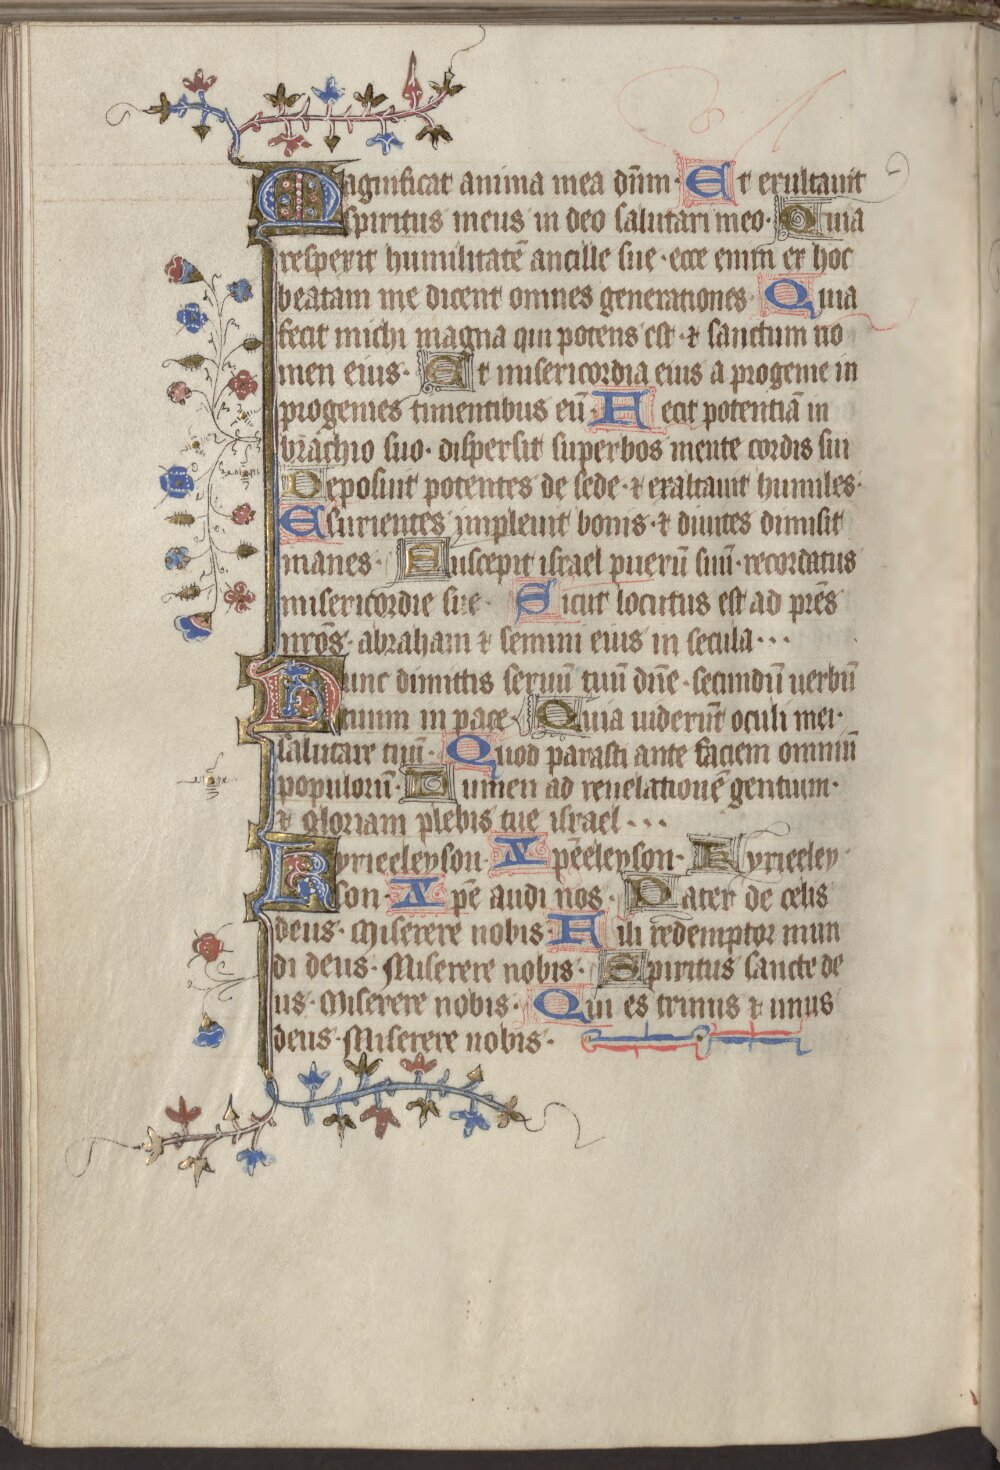 Magnificat anima mea dn̄m· Et exultauit
spiritus meus in deo salutari meo· Quia
respexit humilitatē ancille sue· ecce enim ex hoc
beatam me dicent omnes generationes· Quia
fecit michi magna qui potens est· ⁊ sanctum no
men eius· Et misericordia eius a progenie in
progenies timentibus eū· Fecit potentiā in
brachio suo· dispersit superbos mente cordis sui
Deposuit potentes de sede· ⁊ exaltauit humiles·
Esurientes impleuit bonis· ⁊ diuites dimisit
inanes· Suscepit israel puerū suū· recordatus
misericordie sue· Sicut locutus est ad pr̄es
nr̄os· abraham ⁊ semini eius in secula···
Nunc dimittis seruū tuū dn̄e· secundū uerbū
tuum in pace· Quia uiderūt oculi mei·
salutare tuū· Quod parasti ante faciem omniū
populorū· Lumen ad reuelationē gentium·
⁊ gloriam plebis tue israel···
Kyrieeleyson· Xp̄eeleyson· Kyrieeley
son· Xpē audi nos· Pater de celis
deus· Miserere nobis· Fili redemptor mun
di deus· Miserere nobis· Spiritus sancte de
us· Miserere nobis· Qui es trinus ⁊ unus
deus· Miserere nobis·